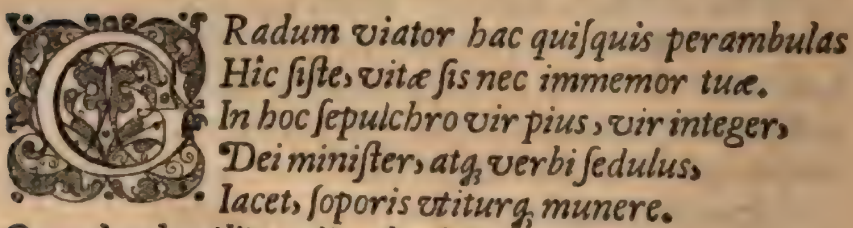 GRadum viator hac quiſquis perambulas
Hîc ſiſte, vitæ ſis nec immemor tuæ.
In hoc ſepulchro vir pius, vir integer,
Dei miniſter, atq; verbi ſedulus,
Iacet, ſoporis vtiturq; munere.